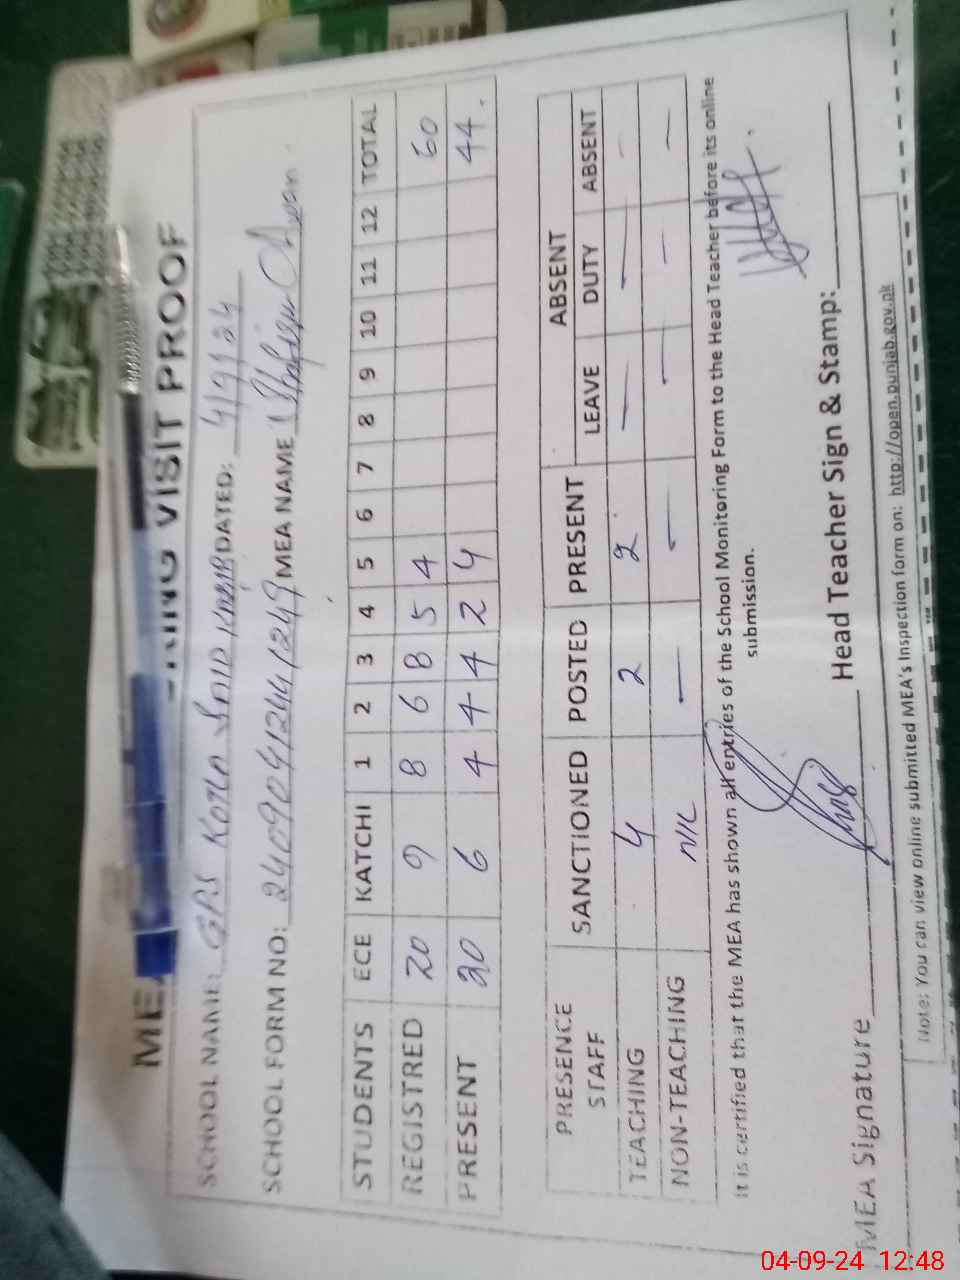 VISIT PROOF
SCHOOL NAME: GPS Kotla Said DATED: 4/9/24
SCHOOL FORM NO: 24090412441249 MEA NAME Awan
STUDENTS ECE KATCHI 1 2 3 4 5 6 7 8 9 10 11 12 TOTAL
REGISTRED 20 9 8 6 8 5 4 60
PRESENT 20 6 4 4 4 2 4 44.
PRESENCE STAFF SANCTIONED POSTED PRESENT ABSENT
LEAVE DUTY ABSENT
TEACHING 4 2 2 — — —
NON-TEACHING Nil — — — — —
It is certified that the MEA has shown all entries of the School Monitoring Form to the Head Teacher before its online
submission.
MEA Signature Head Teacher Sign & Stamp:
Note: You can view online submitted MEA's Inspection form on: http://open.punjab.gov.pk
04-09-24 12:48